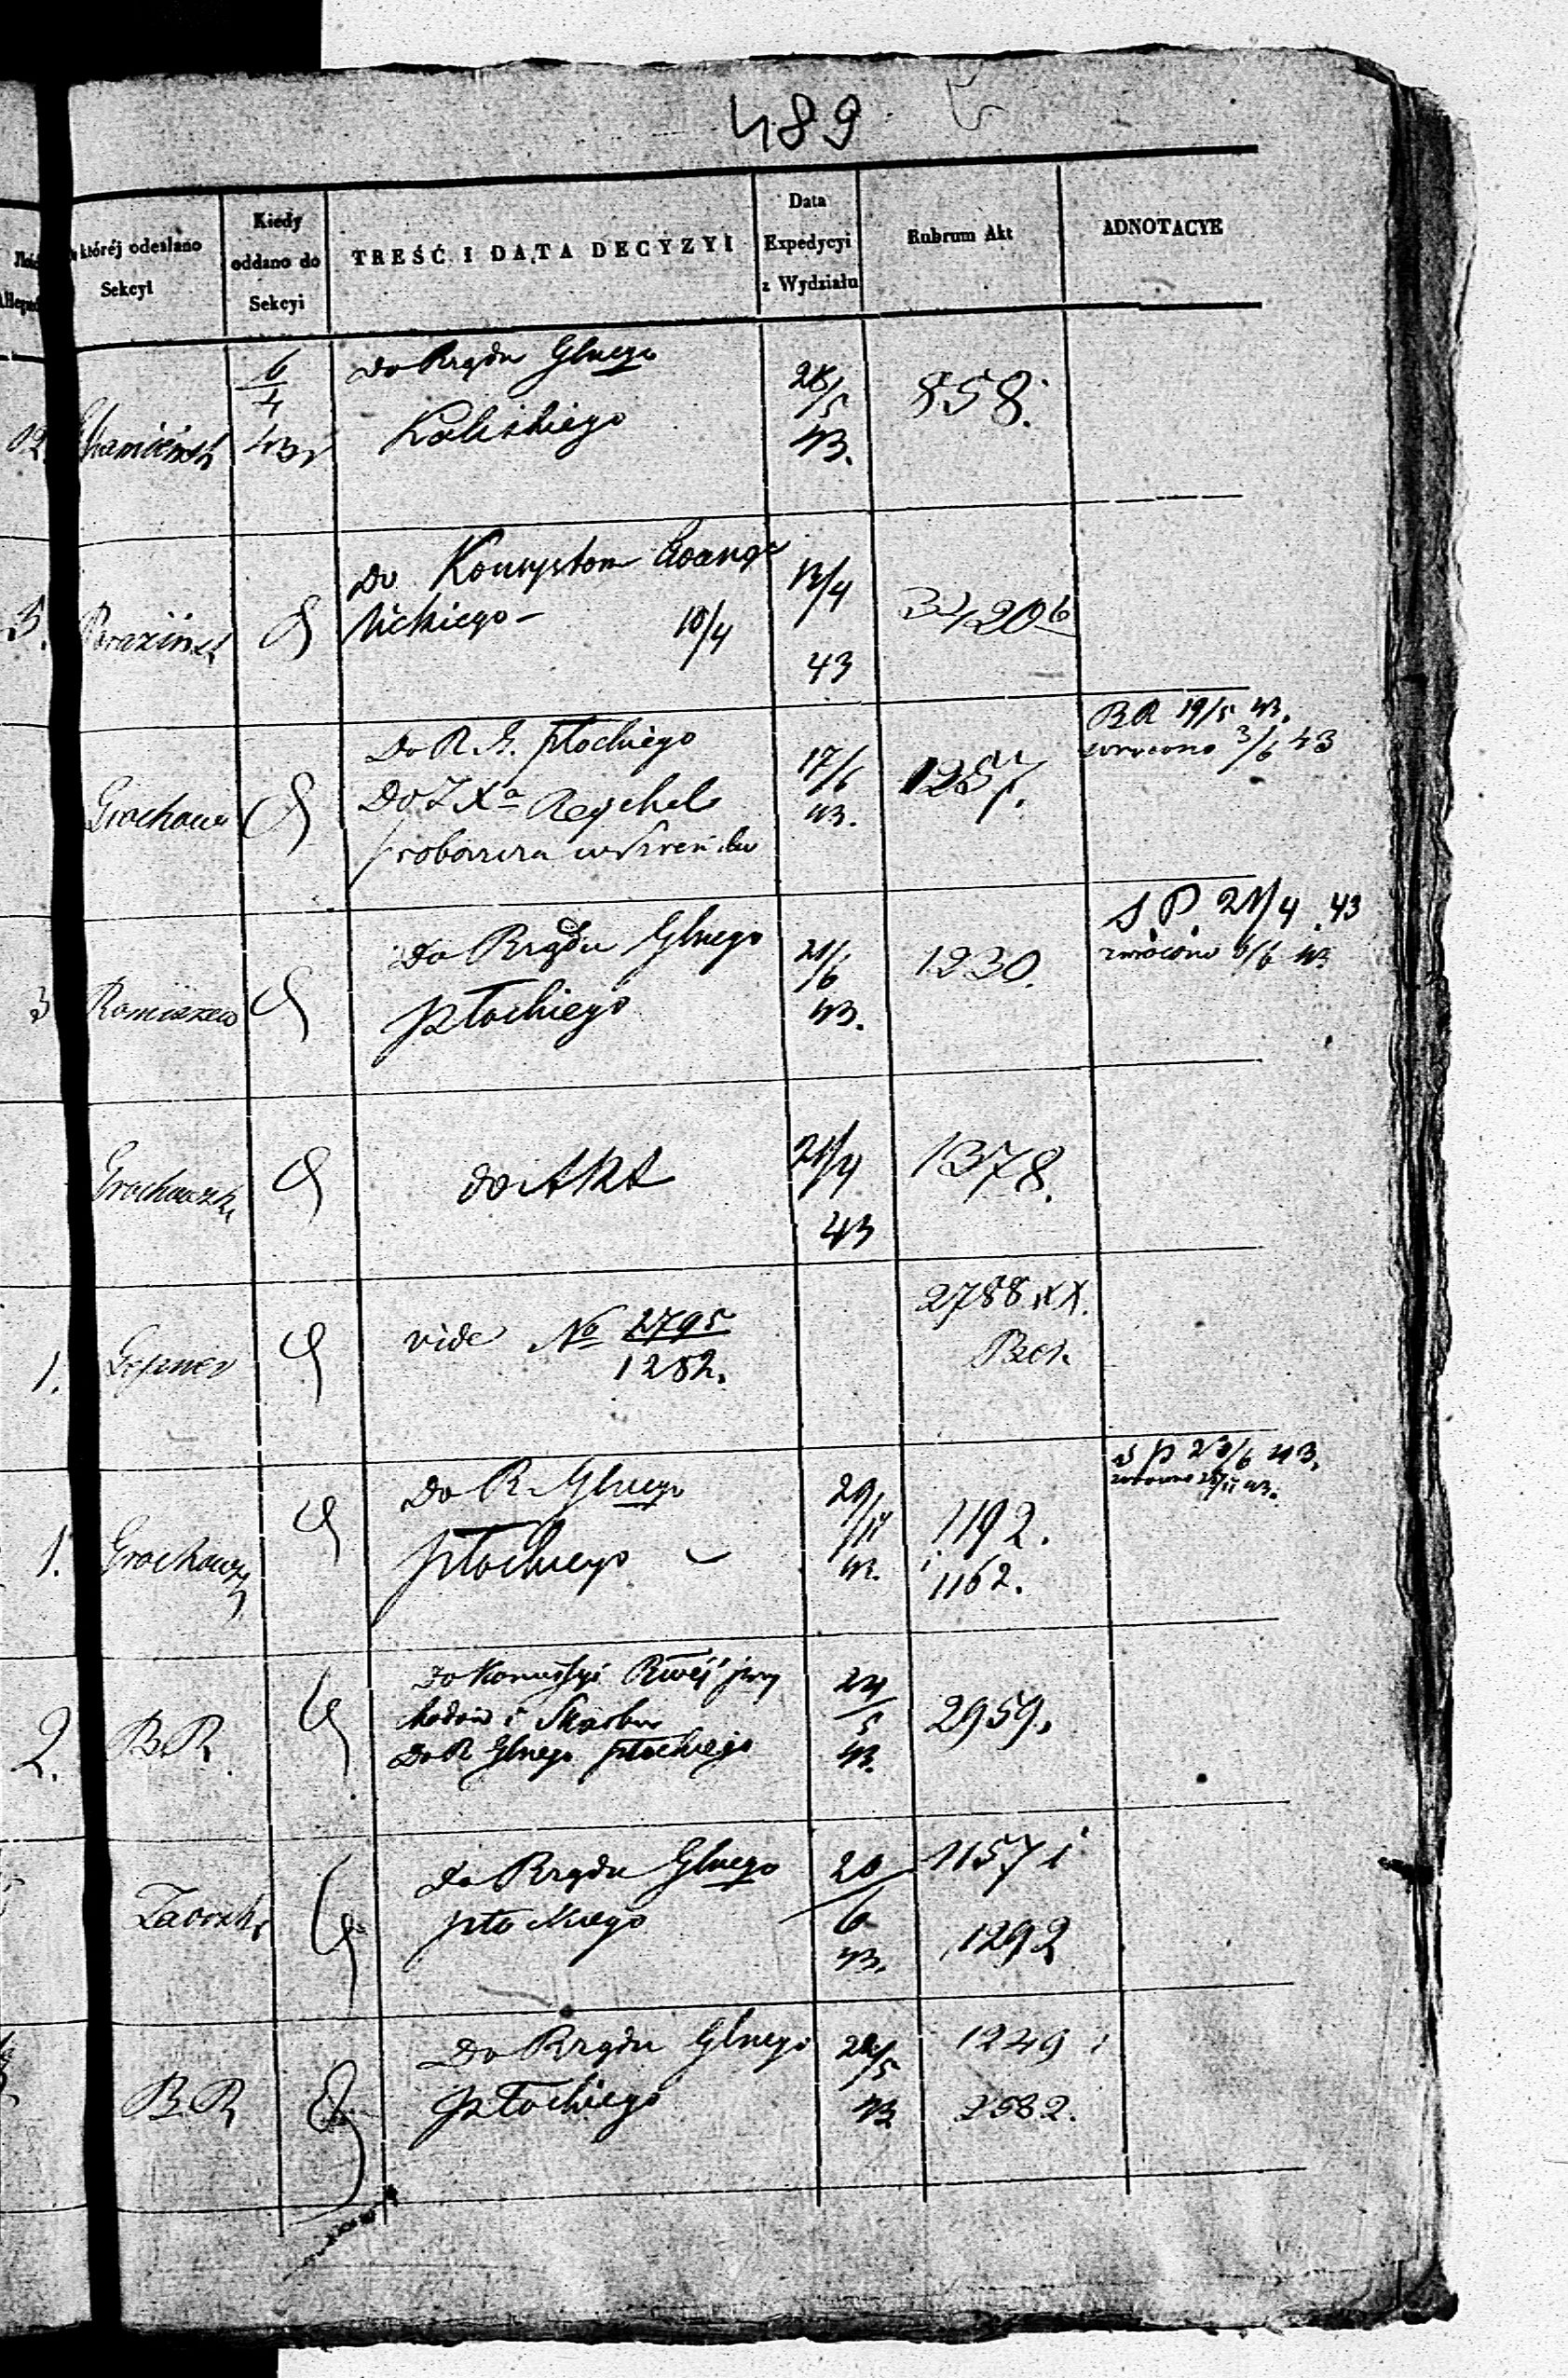 489
któréj odesłano
Sekcyi
Kiedy
oddano do
Sekcyi
TREŚĆ I DATA DECYZYI
Data
Expedycyi
z Wydziału
Rubrum Akt
ADNOTACYE
12.
6/4
43
Do Rządu Glnego
Kaliskiego
28/5
43.
858.
3.
Do Konsystorz Ewange
lickiego – 10/4
12/4
43
3420 b
Grochows
Do R. G. Płockiego
Do J Xa Reychel
Proboszcza w
17/6
43.
1257.
BR 19/5 43.
zwrocono 3/6 43
3
Do Rządu Glnego
Płockiego
21/6
43.
1230.
S P. 21/4 43
zwrócono 3/6 43
Grochowsk
do Akt
21/4
43
1378.
1.
Lessner
vide No 2795
1282.
2788 XX.
1.
Grochowsk
Do R. Glnego
Płockiego
29/11
43.
1192.
i 1162.
S P 23/6 43.
2.
BR
Do Kommissyi Rwéj przy
chodów i Skarbu
Do R Glnego Płockiego
24/5
43.
2959.
Zaborsk
Do Rządu Glnego
Płockiego
20/6
43.
1157 i
1292
BR
Do Rządu Glnego
Płockiego
24/5
43
1249 i
2582.